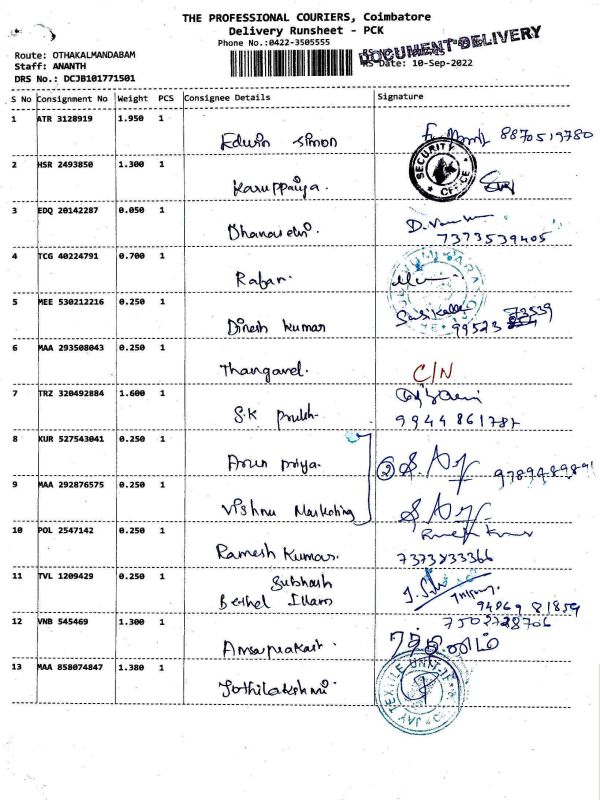 THE PROFESSIONAL COURIERS, Coimbatore
Delivery Runsheet - PCK
Phone No.:0422-3505555
DOCUMENT DELIVERY
Route: OTHAKALMANDABAM
Staff: ANANTH
Date: 10-Sep-2022
DRS No.: DCJB101771501
S No Consignment No Weight PCS Consignee Details Signature
1 ATR 3128919 1.950 1
Edwin Simon 8870519780
2 HSR 2493850 1.300 1
Karuppaiya. SECURITY OFFICE
3 EDQ 20142287 0.050 1
Dhanaselvi. 7373539405
4 TCG 40224791 0.700 1
Rajan.
5 MEE 530212216 0.250 1
Dinesh Kumar Sasikala 73539
99523
6 MAA 293508043 0.250 1
Thangavel. C/N
7 TRZ 320492884 1.600 1
S.K
8 KUR 527543041 0.250 1
Arun Priya. 2
9 MAA 292876575 0.250 1
Vishnu Marketing
10 POL 2547142 0.250 1
Ramesh Kumar. 7373833366
11 TVL 1209429 0.250 1
Subhash
Bethel Illam 94869 81859
12 VNB 545469 1.300 1 7502728706
13 MAA 858074847 1.380 1
Jothilakshmi JAY TEXTILE UNIT